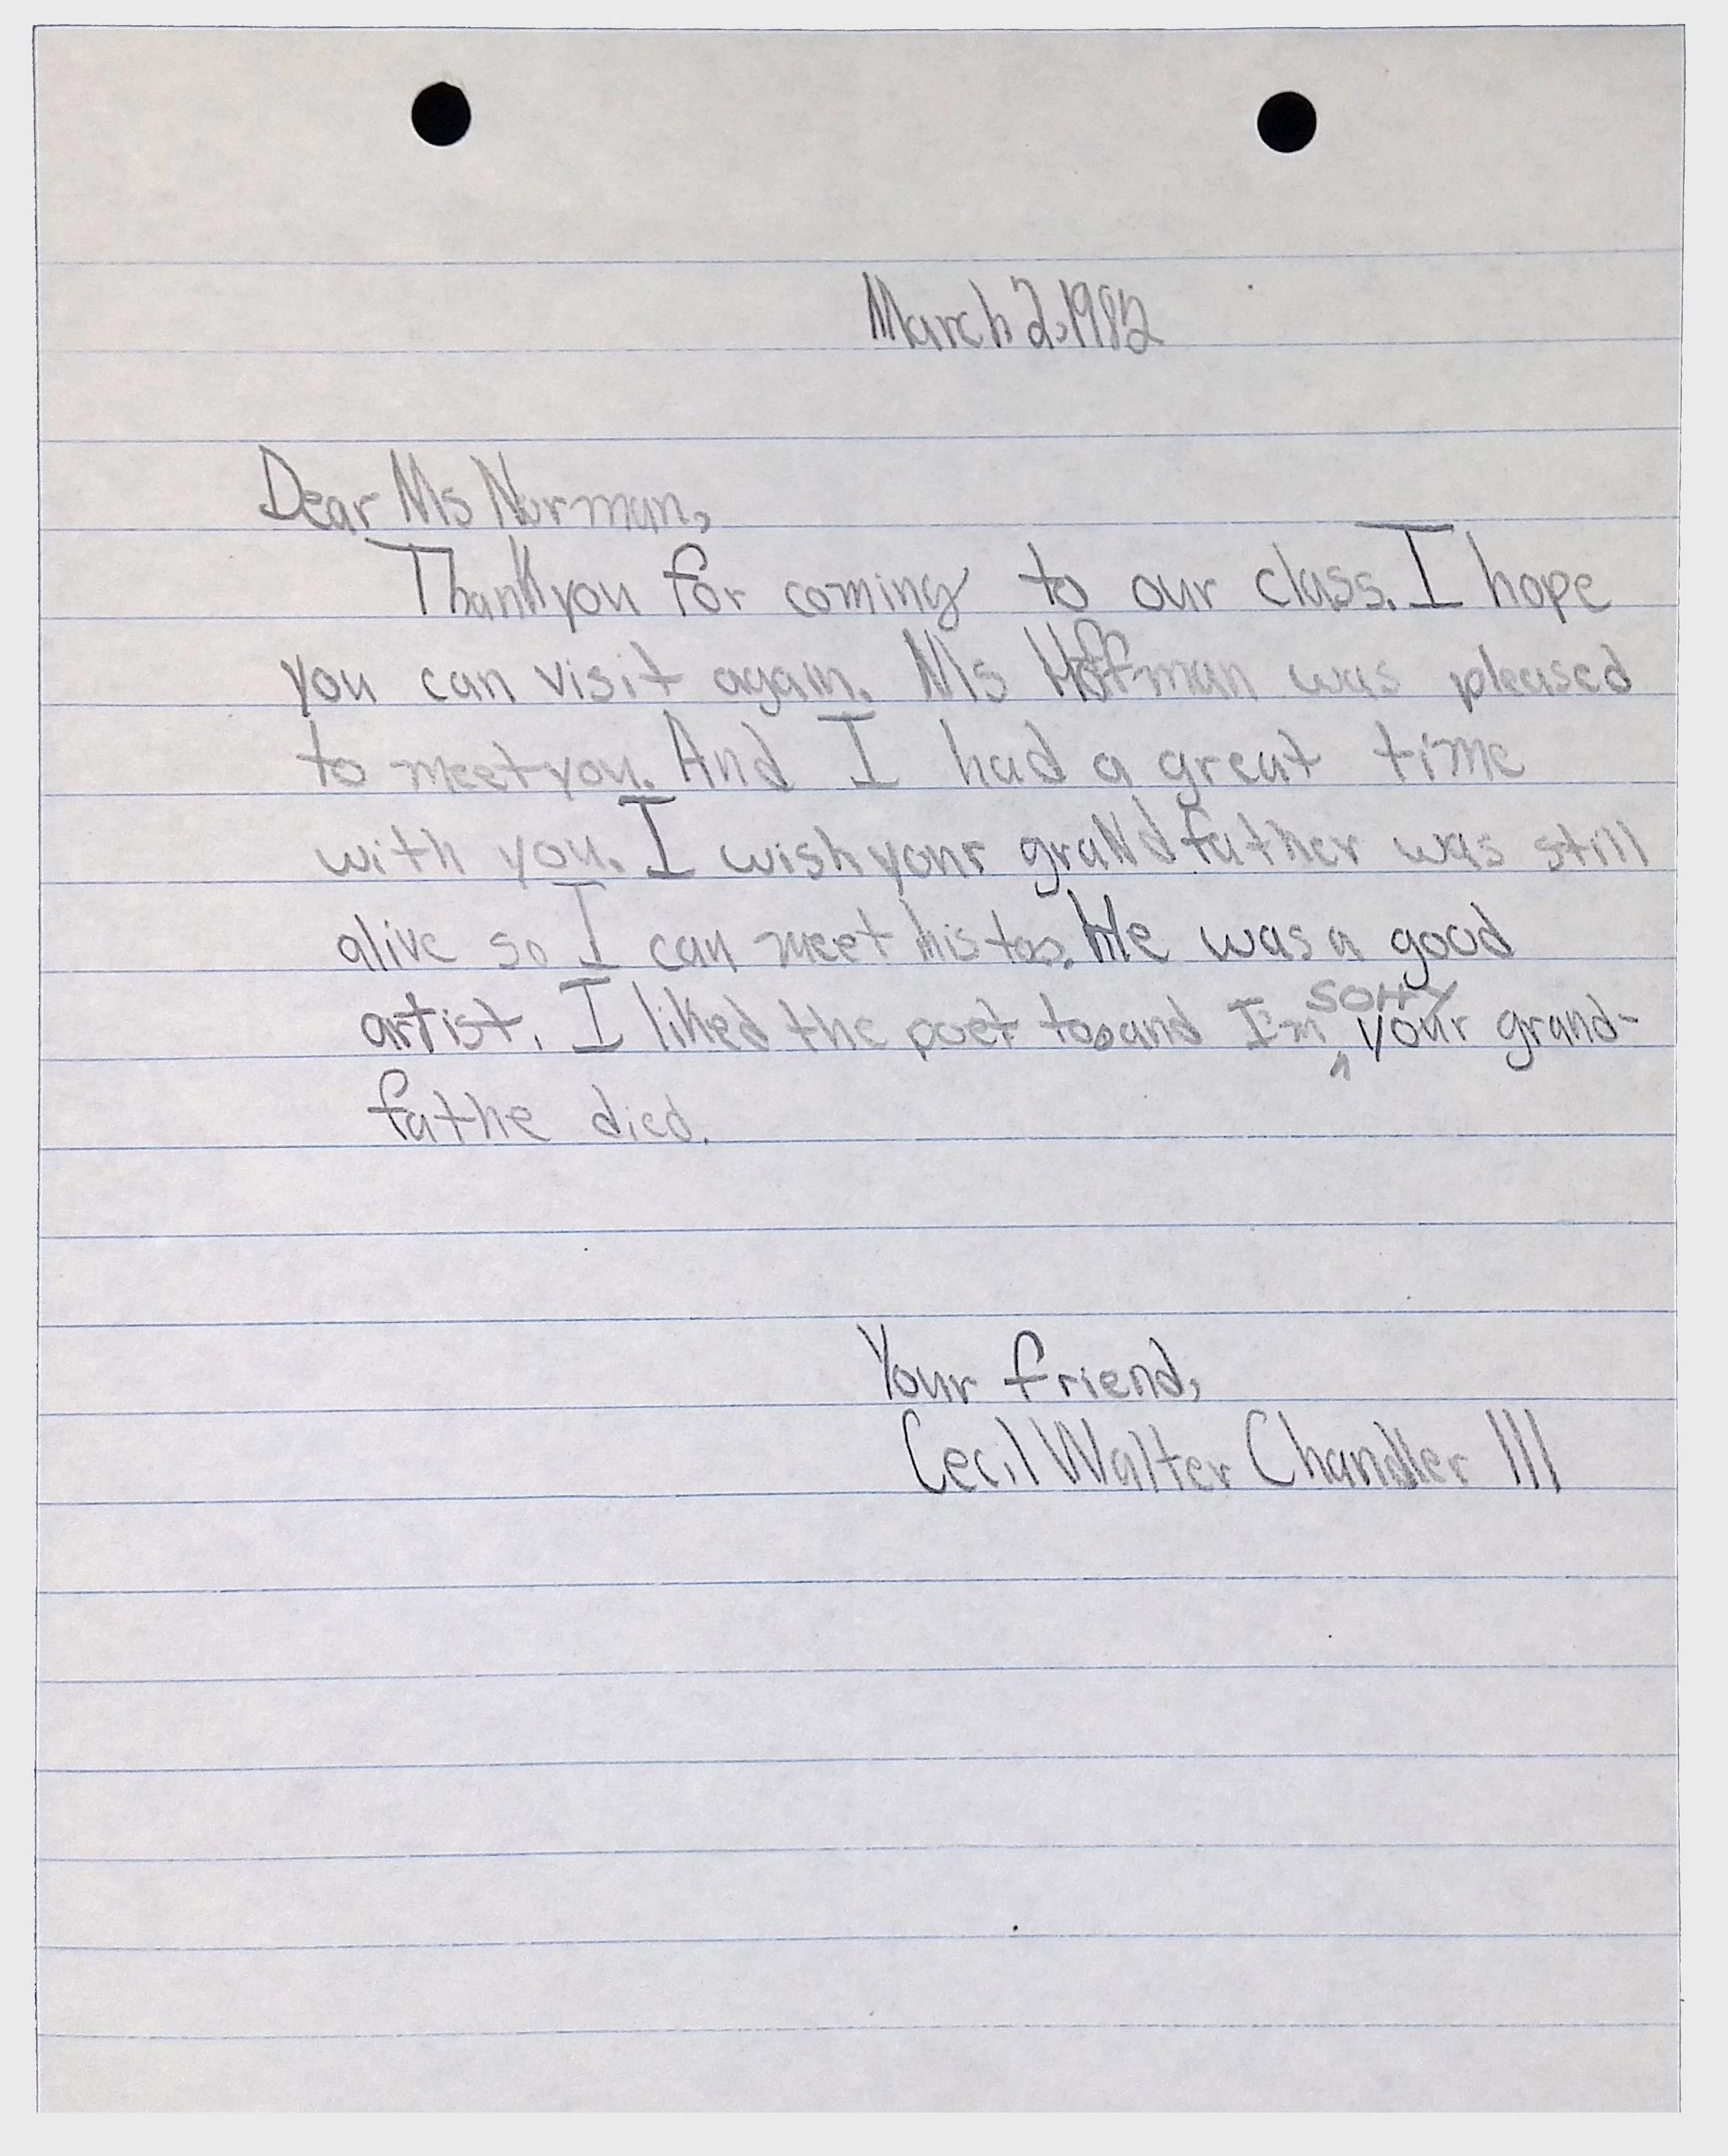 March 2, 1982
Dear Ms Norman,
Thank you for coming to our class. I hope
you can visit again. Ms Hoffman was pleased
to meet you. And I had a great time
with you. I wish your grandfather was still
alive so I can meet his too. He was a good
artist. I liked the poet too and I'm sorry your grand-
fathe died.
Your friend,
Cecil Walter Chandler III